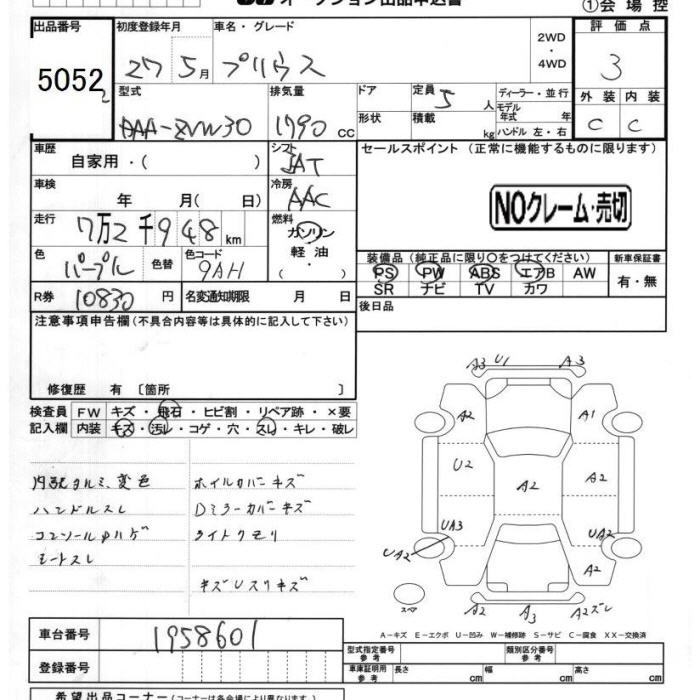 オークション出品申込書
①会場控
出品番号 初度登録年月 車名・グレード 2WD・4WD 評価点
5052 27 5月 プリウス 3
型式 排気量 ドア 定員 5 人 ディーラー・並行 外装 内装
DAA-ZVW30 1790 cc 形状 積載 kg モデル年式 年 ハンドル 左・右 C C
車歴 自家用・( ) シフト JAT セールスポイント (正常に機能するものに限ります)
車検 年 月( 日) 冷房 AAC
NOクレーム・売切
走行 7万2千948km 燃料 ガソリン・軽油・( )
色 パープル 色替 色コード 9AH
装備品 (純正品に限り○をつけてください) 新車保証書
PS PW ABS エアB AW 有・無
SR ナビ TV カワ
R券 10830 円 名変通知期限 月 日 後日品
注意事項申告欄 (不具合内容等は具体的に記入して下さい)
修復歴 有 〔箇所 〕
検査員 FW キズ・飛石・ヒビ割・リペア跡・×要
記入欄 内装 キズ・汚レ・コゲ・穴・スレ・キレ・破レ
変色 ホイルカバーキズ
ハンドルスレ Dミラーカバーキズ
ライトクモリ
シートスレ
A3 U1 A3
A2 A1
U2 A2 A2
UA3 UA2
UA2 A2
スペア
A2 A3 A2ズレ
A-キズ E-エクボ U-凹み W-補修跡 S-サビ C-腐食 XX-交換済
車台番号 1958601
登録番号
型式指定番号 参考 類別区分番号 参考
車庫証明用 参考 長さ cm 幅 cm 高さ cm
希望出品コーナー (コーナー名は各会場により異なります)